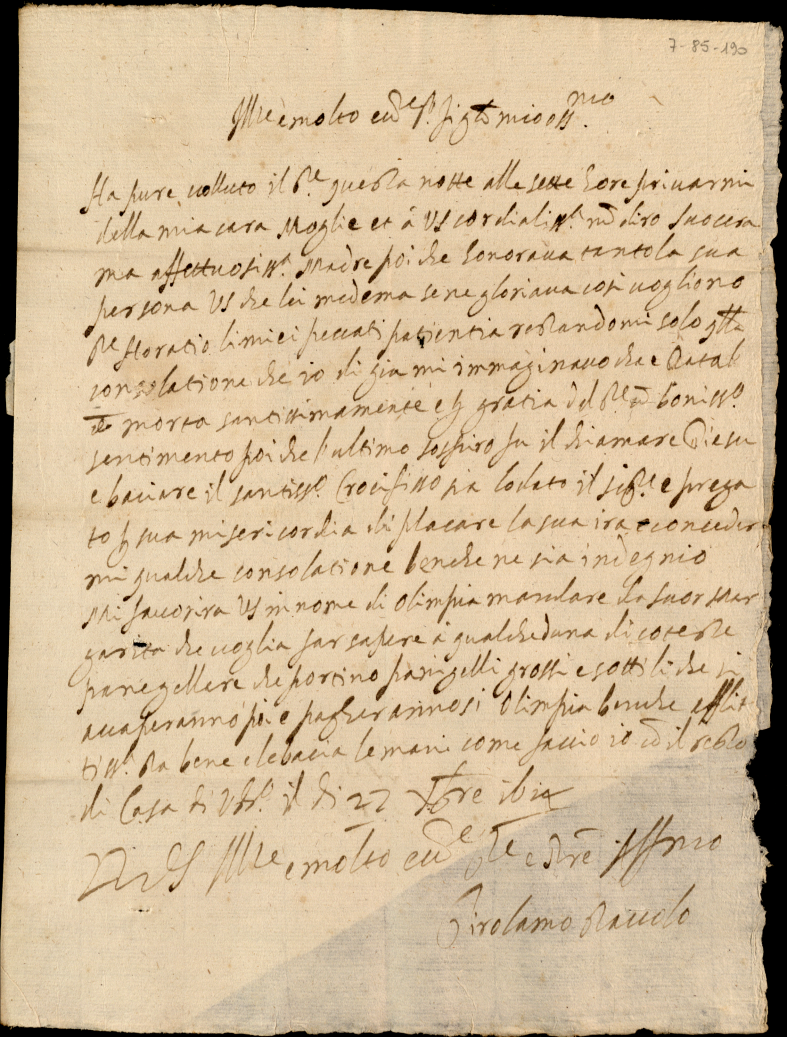 7-85-190
Ill.re e molto ecc.te S.r figl.o mio oss.mo
Ha pure volluto il S.re questa notte alle sette hore privarmi
della mia cara Moglie et à VS cordialiss.a nō diro suocera
ma affettuosiss.a Madre poi che honorava tanto la sua
persona VS che lei medema se ne gloriava così vogliono
S.re Horatio li miei peccati patientia restandomi solo q.sta
consolatione che io di già mi immaginavo che è
morta santissimamente e p gratia del S.re cō boniss.o
sentimento poi che l'ultimo sospiro fu il chiamare Giesu
e baciare il santiss.o Crocifisso sia lodato il sig.re e prega
to p sua misericordia di placare la sua ira e conceder
mi qualche consolatione benche ne sia indegnio
Mi favorira VS in nome di Olimpia mandare da suor Mar
garita che voglia far sapere à qualcheduna di coteste
panegellere che portino panigelli grossi e sottili che si
accaperanno poi e pagherannosi Olimpia benche afflit
tiss.a sta bene e le bacia le mani come faccio io cō il resto
di Casa di VS il di 27 Xbre
Di VS Ill.re e molto ecc.te
Girolamo